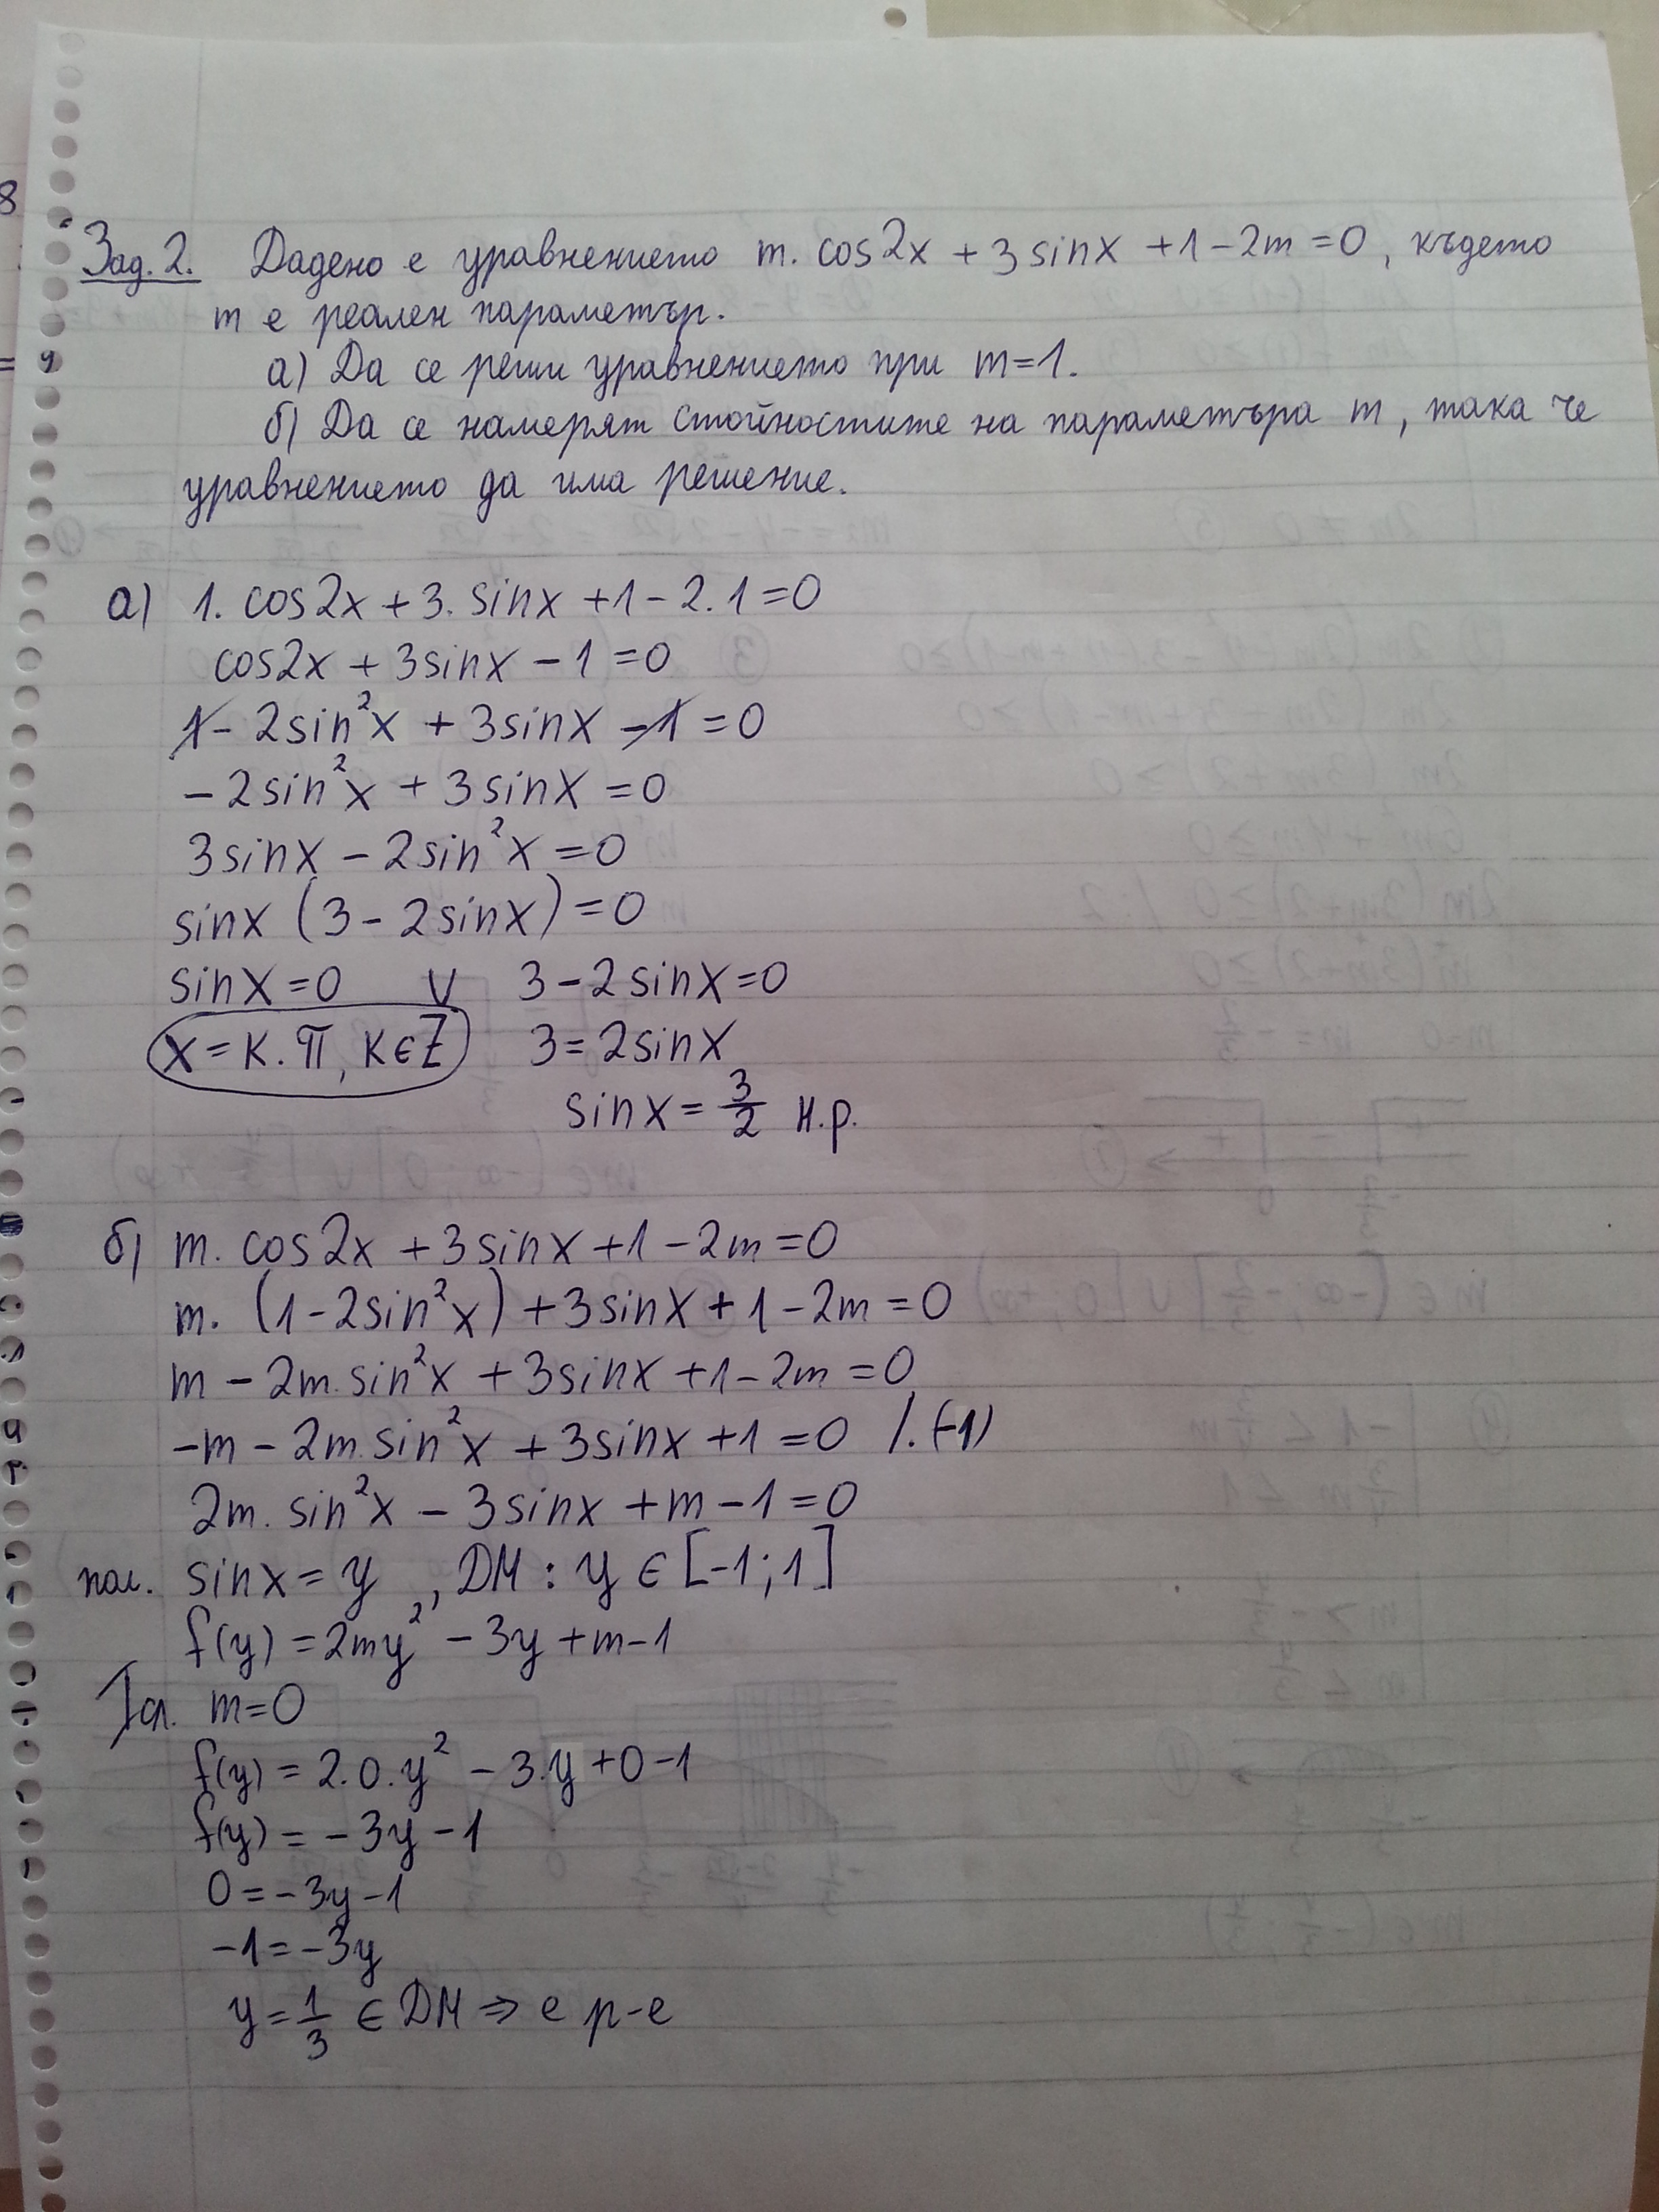 Зад. 2. Дадено е уравнението m. cos2x + 3 sinx + 1 - 2m = 0, където
m е реален параметър.
а) Да се реши уравнението при m=1.
б) Да се намерят стойностите на параметъра m, така че
уравнението да има решение.
а) 1. cos2x + 3. sinx + 1 - 2.1 = 0
cos2x + 3sinx - 1 = 0
1 - 2sin²x + 3sinx - 1 = 0
- 2sin²x + 3sinx = 0
3sinx - 2sin²x = 0
sinx (3 - 2sinx) = 0
sinx = 0 ∨ 3 - 2sinx = 0
x = k.π, k∈Z 3 = 2sinx
sinx = 3/2 н.р.
б) m. cos2x + 3sinx + 1 - 2m = 0
m. (1 - 2sin²x) + 3sinx + 1 - 2m = 0
m - 2m.sin²x + 3sinx + 1 - 2m = 0
-m - 2m.sin²x + 3sinx + 1 = 0 /.(-1)
2m. sin²x - 3sinx + m - 1 = 0
пол. sinx = y, ДМ: y ∈ [-1;1]
f(y) = 2my² - 3y + m - 1
I сл. m=0
f(y) = 2.0.y² - 3.y + 0 - 1
f(y) = -3y - 1
0 = -3y - 1
-1 = -3y
y = 1/3 ∈ ДМ ⇒ е р-е